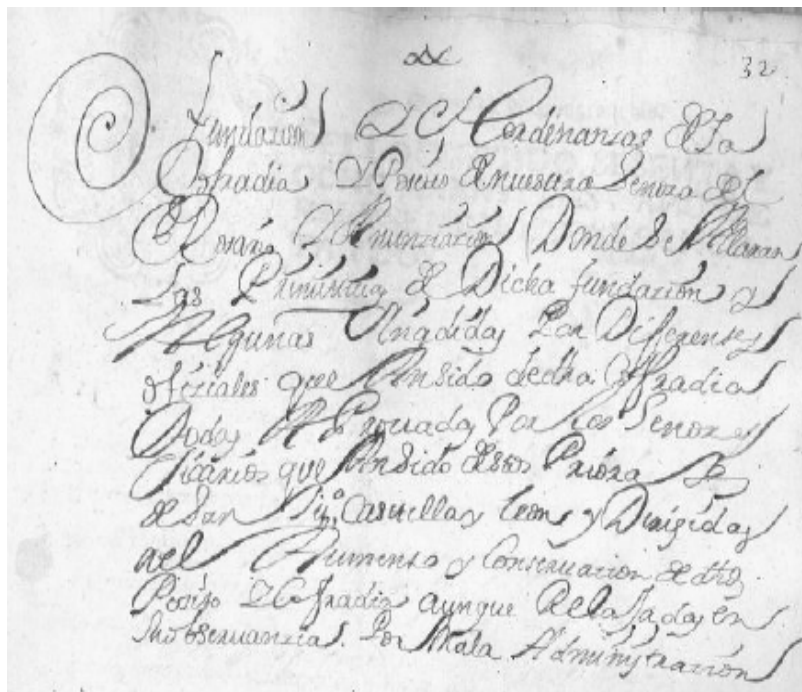 32
Fundazion Y Ordenanzas de la
Cofradia Y Posito de nuestra Senora del
Rosario Y Anunziazion Donde se Allaran
Las Primitivas de Dicha fundazion y
Algunas Anadidas Por Diferentes
ofiziales que An sido de dha Cofradia
Todas Aprouadas Por los Senores
Vicarios que An sido destos Prioratos
de San Castilla y Leon y Dirigidas
a el Aumento y Conseruacion de dho
Posito y Cofradia aunque Relajadas en
Su obseruanzia. Por Mala Administrazion